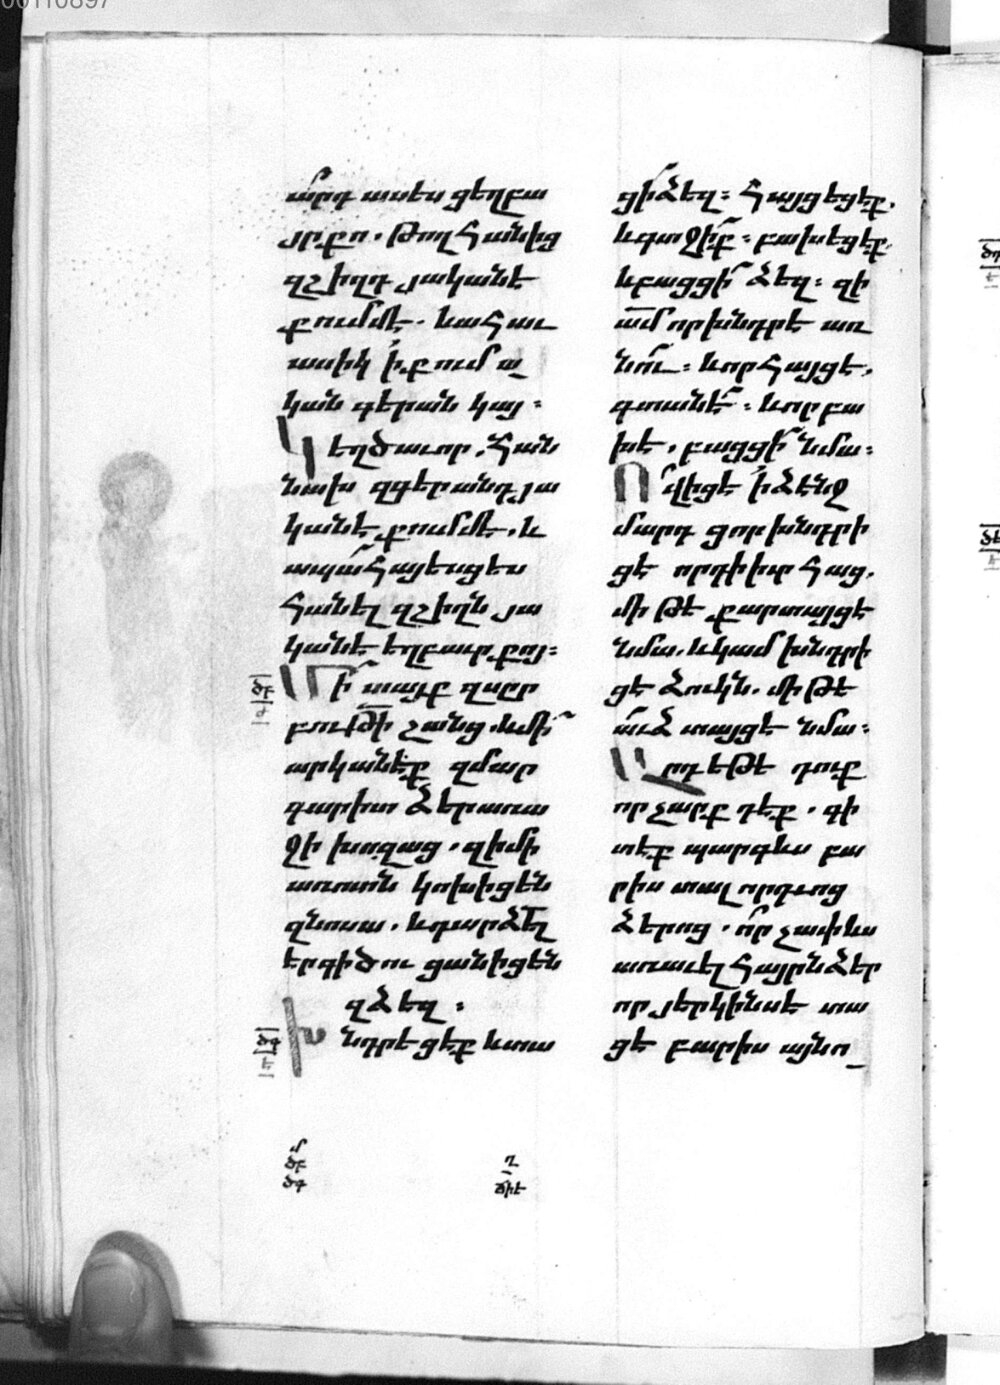 00110897
ա՞րդ ասես ցեղբա
յր քո. թող հանից
զշիւղդ յականէ
քումմէ. և ահաւ
ասիկ ի քում ա
կան գերան կայ։
Կեղծաւոր, հան
նախ զգերանդ յա
կանէ քումմէ. և
ապա հայեսցես
հանել զշիւղն յա
կանէ եղբաւր քոյ։
Մի տայք զսըր
բութի շանց. և մի
արկանէք զմար
գարիտ ձեր առա
ջի խոզաց. զի մի
առ ոտն կոխիցեն
զնոսա. և դարձել
երգիծուցանիցեն
զձեզ։
Խնդրեցէք և տա
ծբ
ծգ
մ
ծբ
ծգ
ղ
ճիէ
ցի ձեզ։ հայցեցէք,
և գտջիք։ բախեցէք,
և բացցի ձեզ։ զի
ամ որ խնդրէ առ
նու։ և որ հայցէ,
գտանէ։ և որ բա
խէ, բացցի նմա։
Ո՞վ իցէ ի ձենջ
մարդ ցոր խնդրի
ցէ որդի իւր հաց.
մի թէ քար տայցէ
նմա. և կամ խնդրի
ցէ ձուկն. մի թէ
աւձ տայցէ նմա։
Արդ եթէ դուք
որ չարքդ էք. գի
տէք պարգևս բա
րիս տալ որդւոց
ձերոց. ո՞րչափ ևս
առաւել հայրն ձեր
որ յերկինս է տա
ցէ բարիս այնո